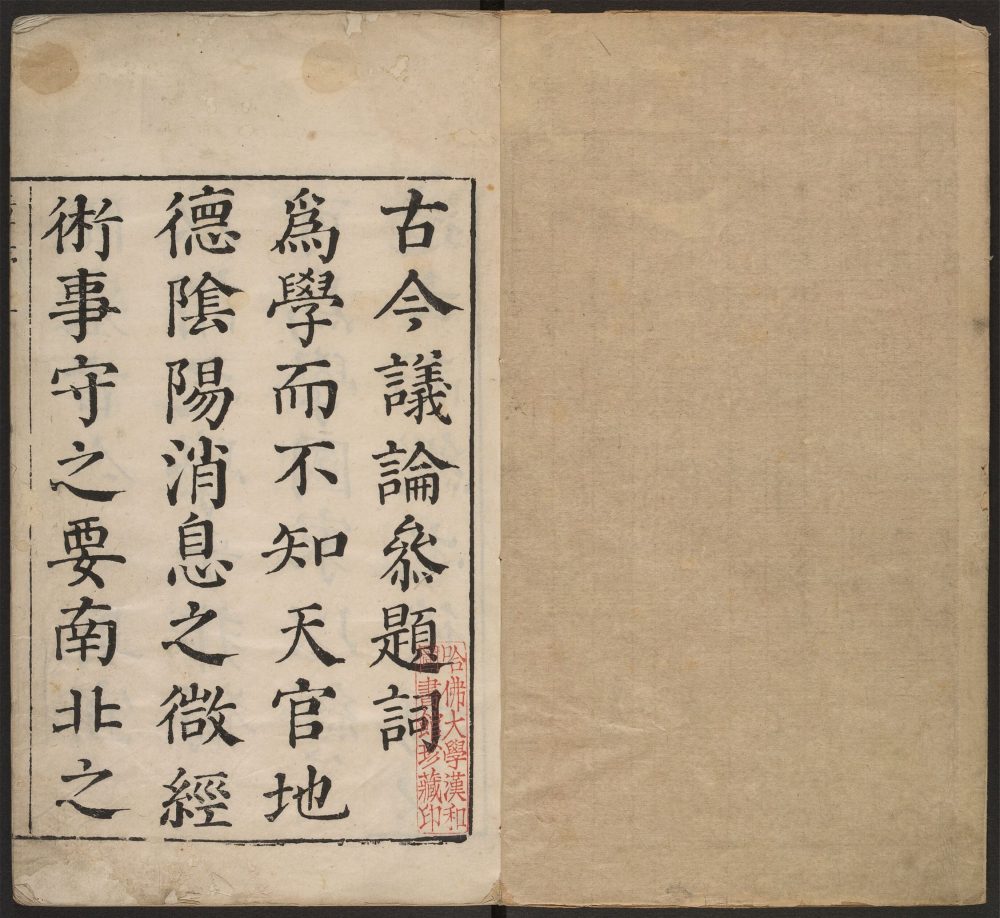 古今議論叅題詞
爲學而不知天官地
德隂陽消息之微經
術事守之要南北之
哈佛大學漢和
圖書館珍藏印